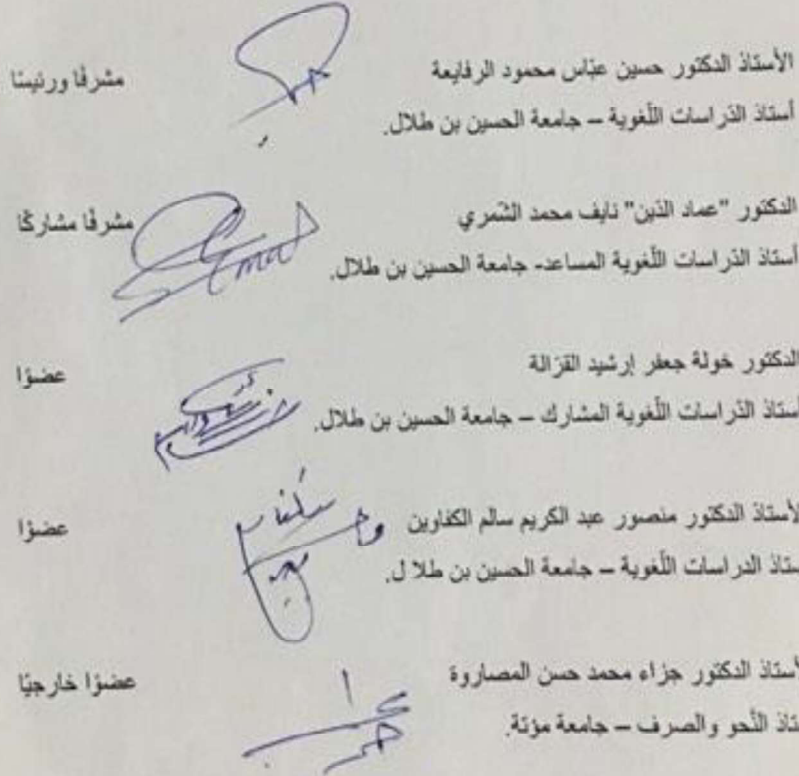 الأستاذ الدكتور حسين عبّاس محمود الرفايعة مشرفًا ورئيسًا
أستاذ الدّراسات اللّغوية – جامعة الحسين بن طلال.
الدكتور "عماد الدّين" نايف محمد الشّمري مشرفًا مشاركًا
أستاذ الدّراسات اللّغوية المساعد- جامعة الحسين بن طلال.
الدكتور خولة جعفر إرشيد القرّالة عضوًا
أستاذ الدّراسات اللّغوية المشارك – جامعة الحسين بن طلال.
لأستاذ الدكتور منصور عبد الكريم سالم الكفاوين عضوًا
ستاذ الدراسات اللّغوية – جامعة الحسين بن طلا ل.
لأستاذ الدكتور جزاء محمد حسن المصاروة عضوًا خارجيًا
تاذ النّحو والصرف – جامعة مؤتة.